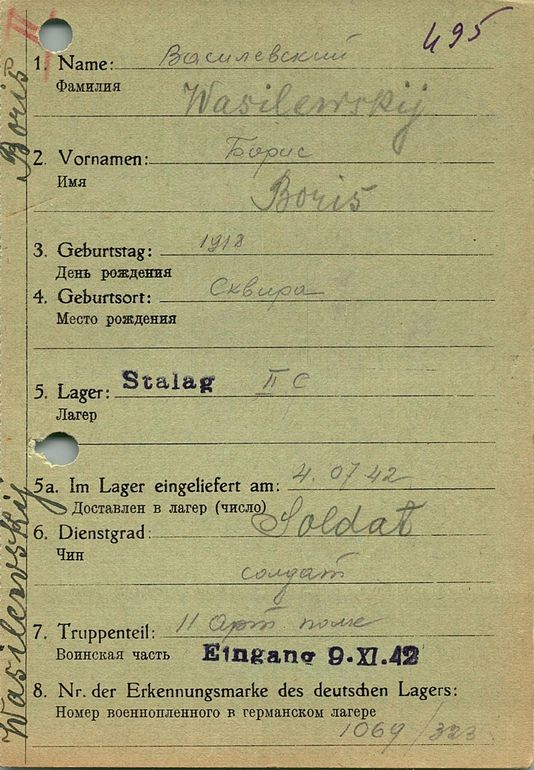 II
495
1. Name: Василевский
Фамилия
Wasilewskij
2. Vornamen: Борис
Имя
Boris
3. Geburtstag: 1918
День рождения
4. Geburtsort: Сквира
Место рождения
5. Lager: Stalag II C
Лагер
5a. Im Lager eingeliefert am: 4.07 42
Доставлен в лагер (число)
6. Dienstgrad: Soldat
Чин
солдат
7. Truppenteil: 11 арт. полк
Воинская часть Eingang 9.XI.42
8. Nr. der Erkennungsmarke des deutschen Lagers:
Номер военнопленного в германском лагере
1069/323
Wasilewskij Boris